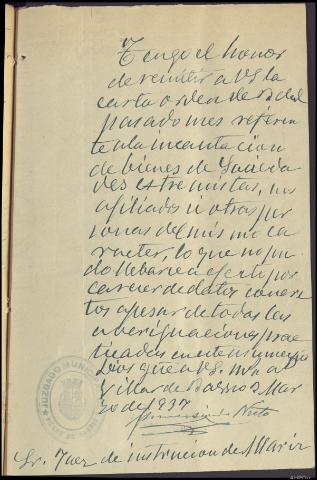 Tengo el honor
de remitir a VS la
carta orden de 22 del
pasado mes referen
te a la incautacion
de bienes de Socieda
des estremistas, sus
afiliados u otras per
sonas del mismo ca
racter, lo que no pu
do llebarse a efecto por
carecer de datos concre
tos apesar de todas las
aberiguaciones prac
ticadas en este
Dios gue a VS m a
Villar de Barrio 2 Mar
zo de 1937
Nieto
Sr. Juez de instrucion de Allariz
JUZGADO MUNICIPAL